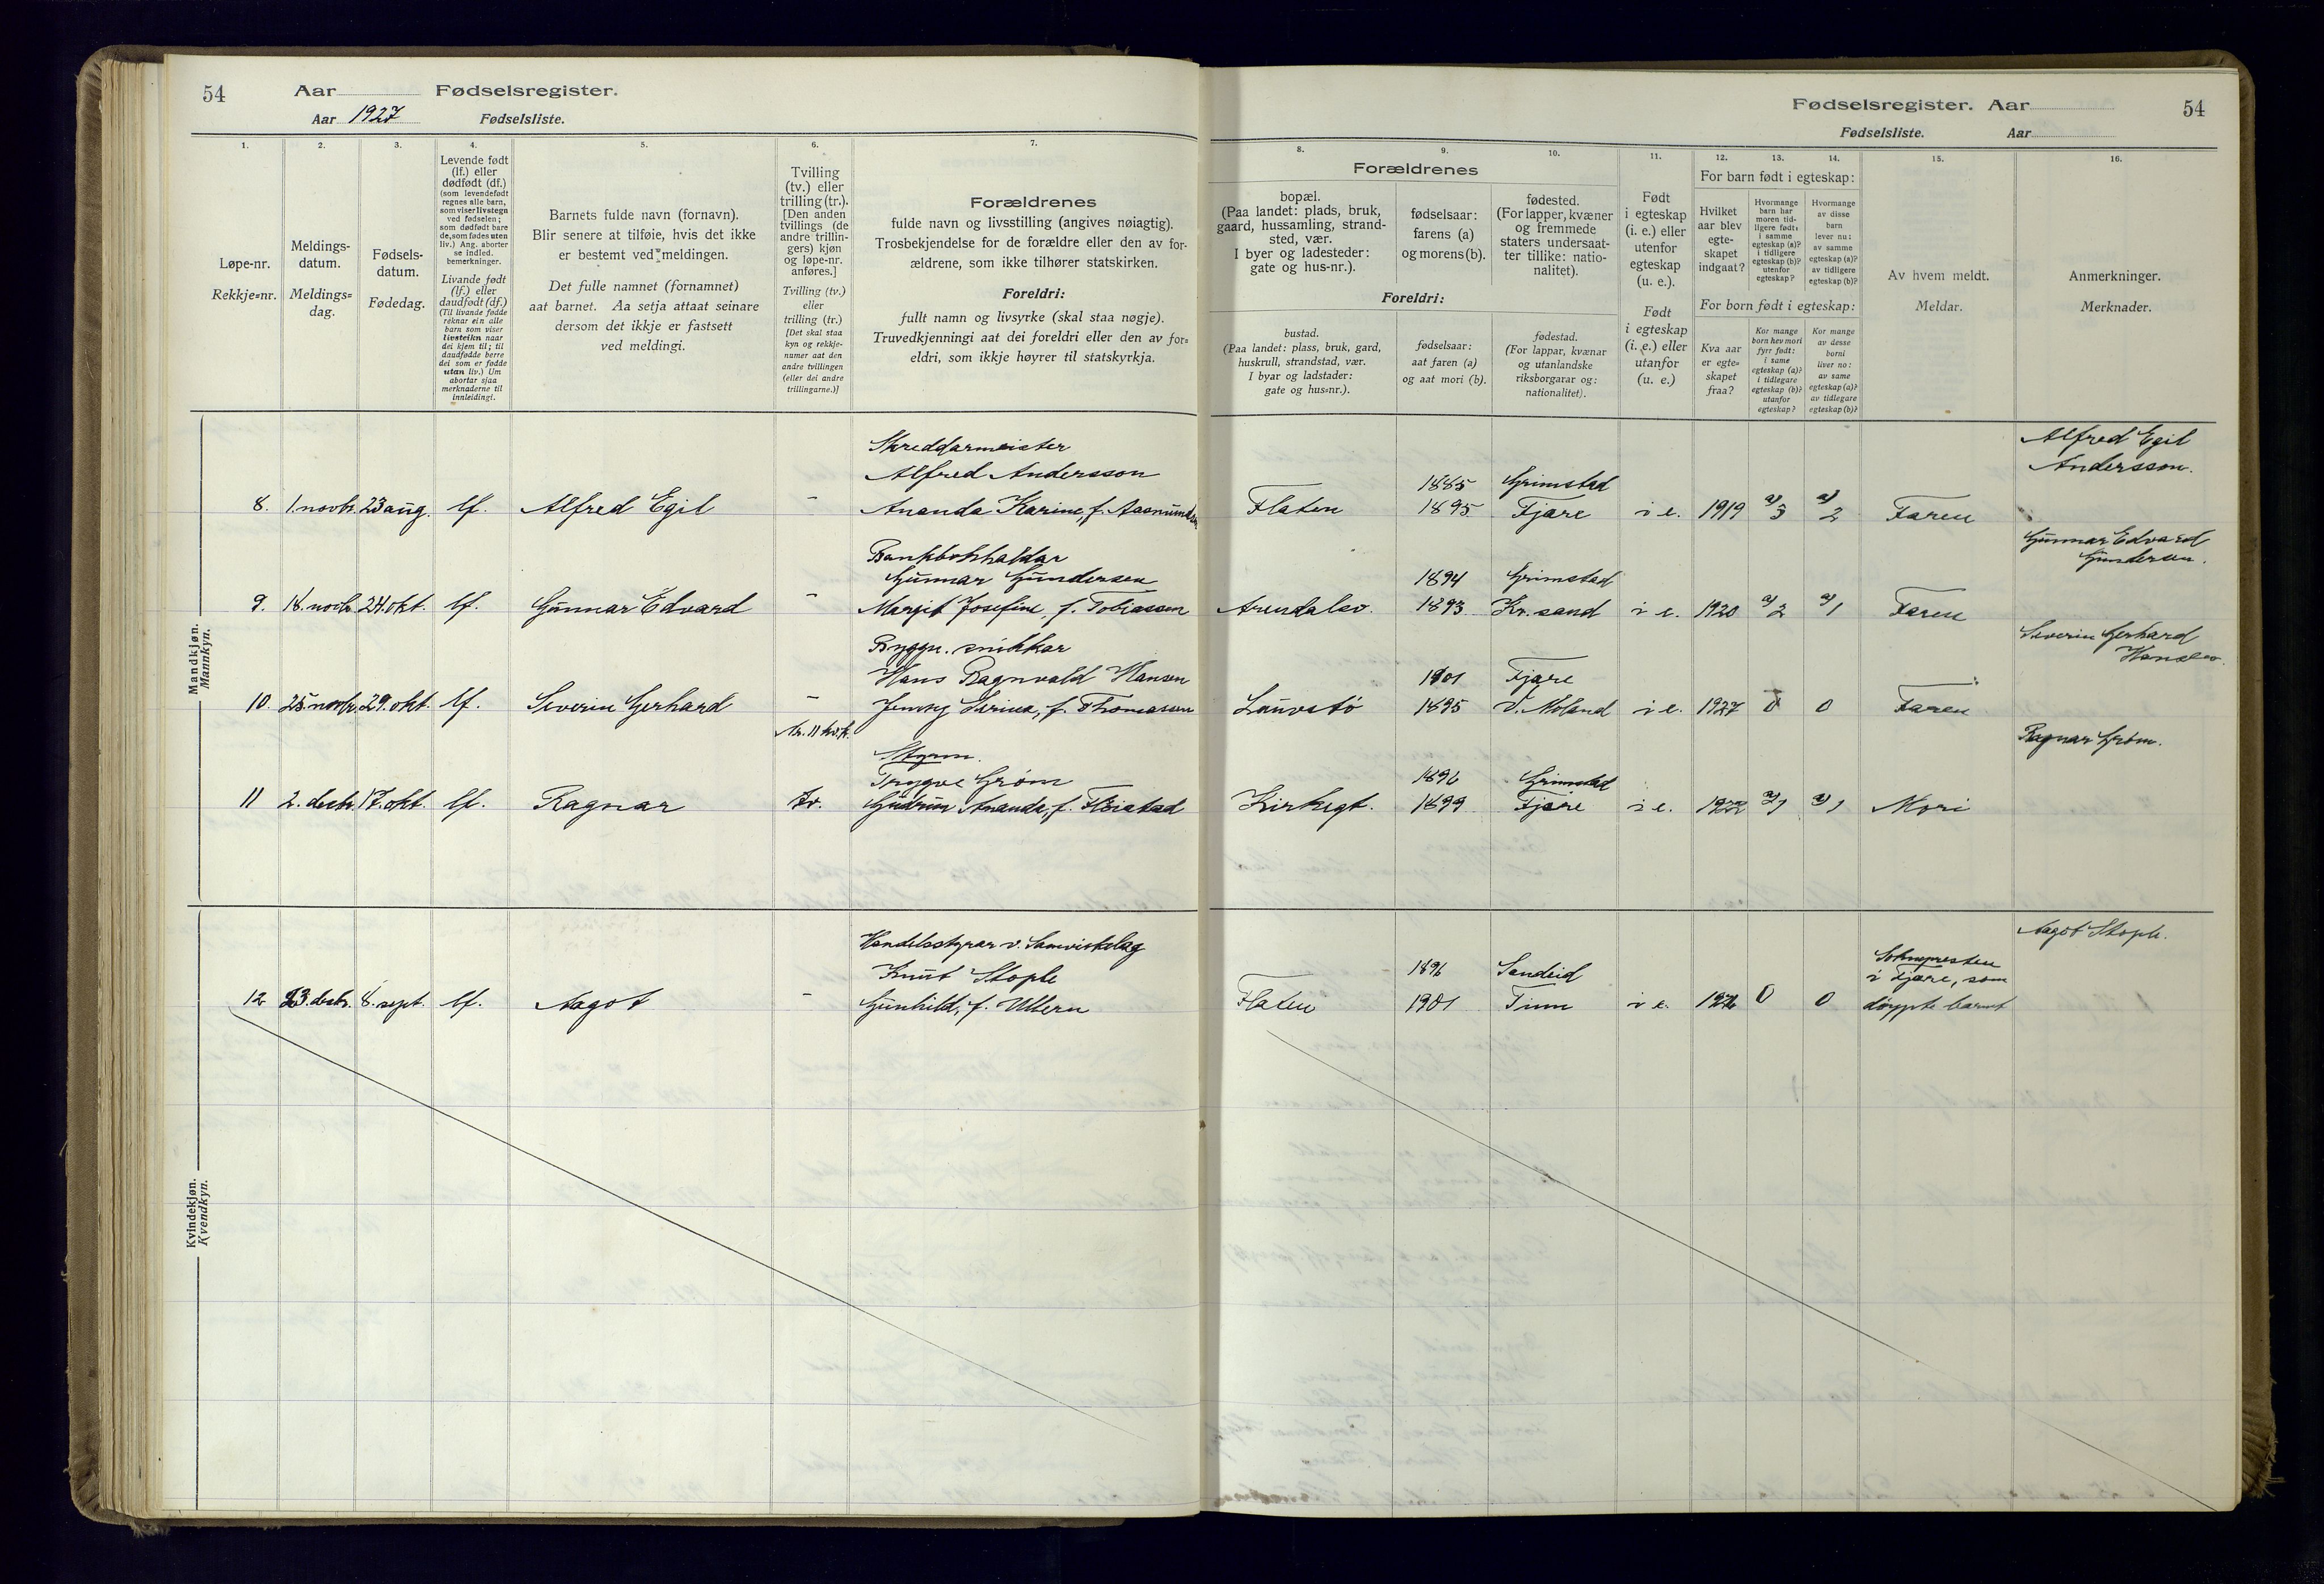 54 Aar Fødselsregister.
Aar 1927 Fødselsliste.
1. 2. 3. 4. 5. 6. 7.
Løpe-nr.
Rekkje=nr.
Meldings-
datum.
Meldings=
dag.
Fødsels-
datum.
Fødedag.
Levende født
(lf.) eller
dødfødt (df.)
(som levendefødt
regnes alle barn,
som viser livstegn
ved fødselen;
som dødfødt bare
de, som fødes uten
liv.) Ang. aborter
se indled.
bemerkninger.
Livande født
(lf.) eller
daudfødt (df.)
(Til livande fødde
reknar ein alle
barn som viser
livsteikn naar
dei kjem til; til
daudfødde berre
dei som er fødde
utan liv.) Um
abortar sjaa
merknaderne til
innleidingi.
Barnets fulde navn (fornavn).
Blir senere at tilføie, hvis det ikke
er bestemt ved meldingen.
Det fulle namnet (fornamnet)
aat barnet. Aa setja attaat seinare
dersom det ikkje er fastsett
ved meldingi.
Tvilling
(tv.) eller
trilling (tr.).
[Den anden
tvillings (de
andre trillin-
gers) kjøn
og løpe-nr.
anføres.]
Tvilling (tv.)
eller
trilling (tr.)
[Det skal staa
kyn og rekkje-
numer aat den
andre tvillingen
(eller dei andre
trillingarne.)]
Forældrenes
fulde navn og livsstilling (angives nøiagtig).
Trosbekjendelse for de forældre eller den av for-
ældrene, som ikke tilhører statskirken.
Foreldri:
fullt namn og livsyrke (skal staa nøgje).
Truvedkjenningi aat dei foreldri eller den av for=
eldri, som ikkje høyrer til statskyrkja.
Mandkjøn.
Mannkyn.
Skreddarmeister
Alfred Andersson
8. 1. novbr. 23 aug. lf. Alfred Egil - Ananda Karine, f.
Bankbokhaldar
Gunnar Gundersen
9. 18. novbr. 24. okt. lf. Gunnar Edvard - Margit Josefine, f. Tobiassen
Byggn. snikkar
Hans Ragnvald Hansen
10. 25. novbr. 29. okt. lf. Severin Gerhard - Jenny Serina, f. Thomassen
Nr. 11 kv.k.
Styrm.
Trygve Grøm
11 2. desbr. 17. okt. lf. Ragnar tv. Gudrun Amanda, f.
Kvindekjøn.
Kvendkyn.
Handelsstyrar v. Samvirkelag
Knut Stople
12 23. desbr. 8. sept. lf. Aagot - Gunhild, f. Ullern
Fødselsregister. Aar 54
Fødselsliste. Aar
8. 9. 10. 11. 12. 13. 14. 15. 16.
Forældrenes
bopæl.
(Paa landet: plads, bruk,
gaard, hussamling, strand-
sted, vær.
I byer og ladesteder:
gate og hus-nr.).
fødselsaar:
farens (a)
og morens (b).
fødested.
(For lapper, kvæner
og fremmede
staters undersaat-
ter tillike: natio-
nalitet).
Foreldri:
bustad.
(Paa landet: plass, bruk, gard,
huskrull, strandstad, vær.
I byar og ladstader:
gate og hus=nr.).
fødselsaar:
aat faren (a)
og aat mori (b).
fødestad.
(For lappar, kvænar
og utanlandske
riksborgarar og:
nationalitet).
Født
i egteskap
(i. e.) eller
utenfor
egteskap
(u. e.).
Født
i egteskap
(i. e.) eller
utanfor
(u. e.)
For barn født i egteskap:
Hvilket
aar blev
egte-
skapet
indgaat?
Hvormange
barn har
moren tid-
ligere født:
i samme
egteskap (a)?
i tidligere
egteskap (b)?
utenfor
egteskap?
Hvormange
av disse
barn
lever nu:
av samme
egteskap (a)?
av tidligere
egteskap (b)?
For born født i egteskap:
Kva aar
er egte=
skapet
fraa?
Kor mange
born hev mori
fyrr født:
i same
egteskap (a)?
i tidlegare
egteskap (b)?
utanfor
egteskap?
Kor mange
av desse
borni
liver no:
av same
egteskap (a)?
av tidlegare
egteskap (b)?
Av hvem meldt.
Meldar.
Anmerkninger.
Merknader.
Alfred Egil
Andersson.
1885 Grimstad
Flaten 1895 Fjære i e. 1919 a) 3 a) 2 Faren
Gunnar Edvard
Gundersen.
1894 Grimstad
Arendalsv. 1893 Kr.sand i e. 1920 a) 2 a) 1 Faren
Severin Gerhard
Hansen.
1901 Fjære
1895 V. Moland i e. 1927 0 0 Faren
Ragnar Grøm.
1896 Grimstad
Kirkegt. 1899 Fjære i e. 1922 a) 1 a) 1 Mori
Aagot Stople.
1896 Sandeid
Flaten 1901 Tinn i e. 1926 0 0
Soknepresten
i Fjære, som
døypte barnet